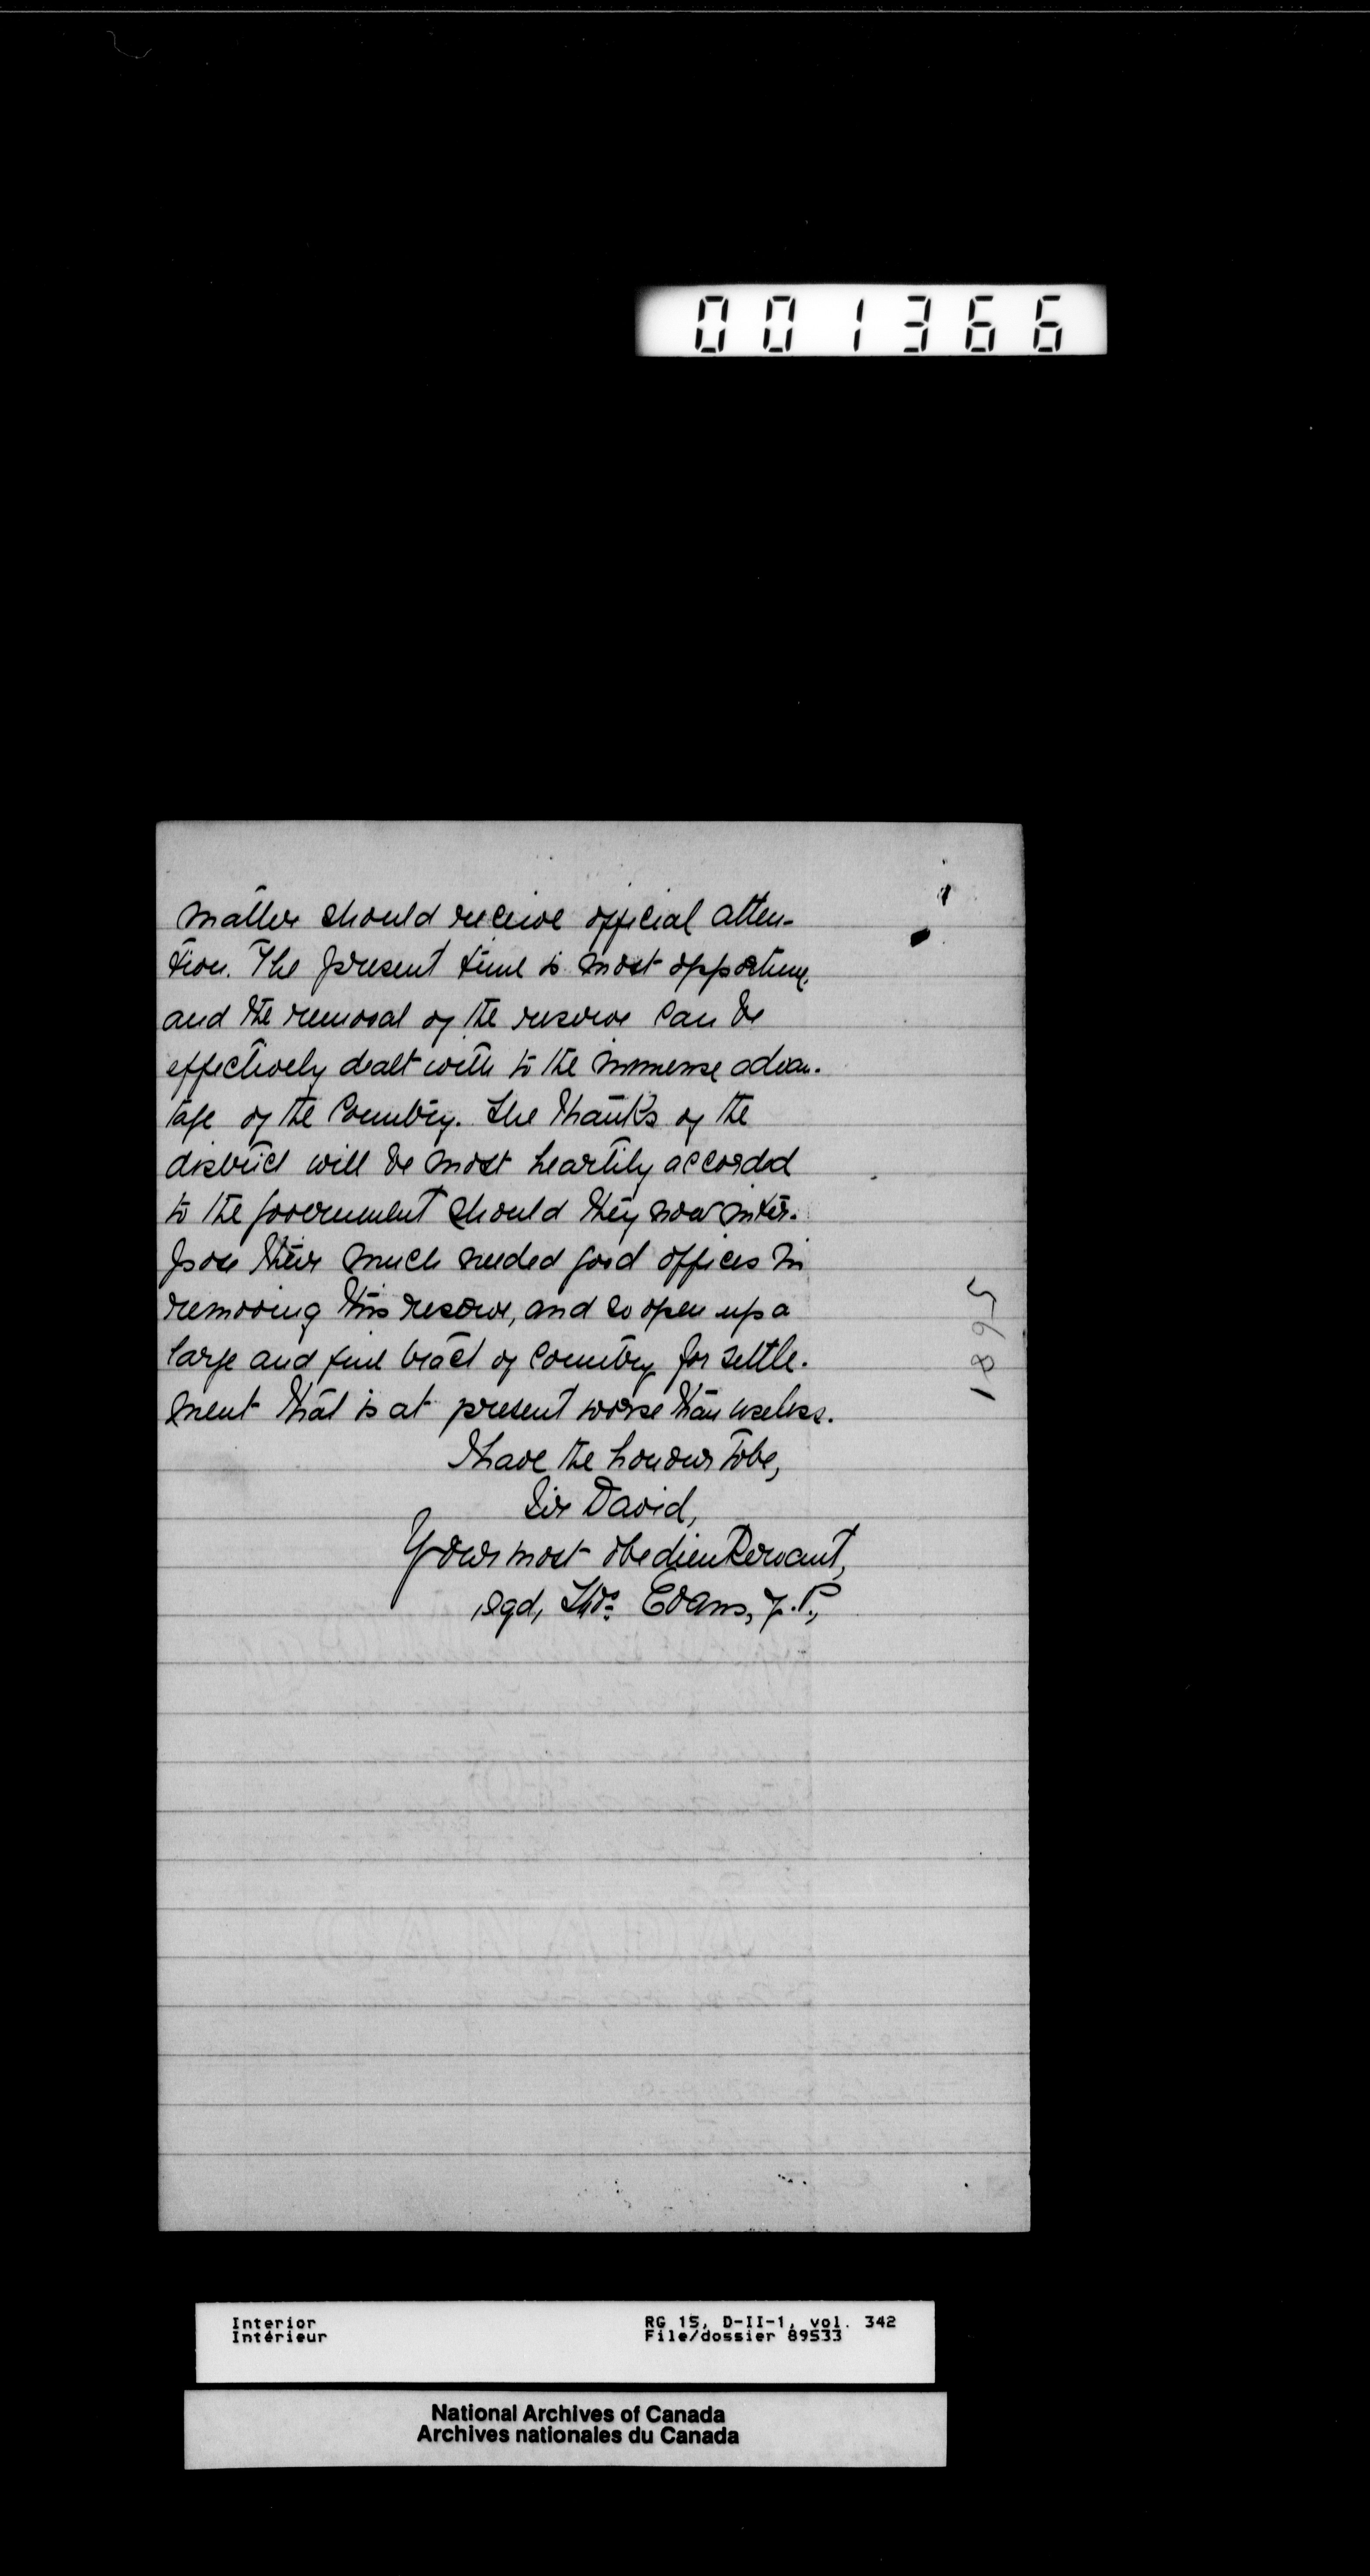 001366
matter should receive official atten-
tion. The present time is most opportune,
and the removal of the reserve can be
effectively dealt with to the immense advan-
tage of the Country. The thanks of the
district will be most heartily accorded
to the government should they now inter-
pose their much needed good offices in
removing this reserve, and so open up a
large and fine tract of country for settle-
ment that is at present worse than useless.
I have the honour to be,
Sir David,
Your most obedient Servant,
sgd, Thos. Evans, J.P.,
1895
Interior
Intérieur
RG 15, D-II-1, vol. 342
File/dossier 89533
National Archives of Canada
Archives nationales du Canada